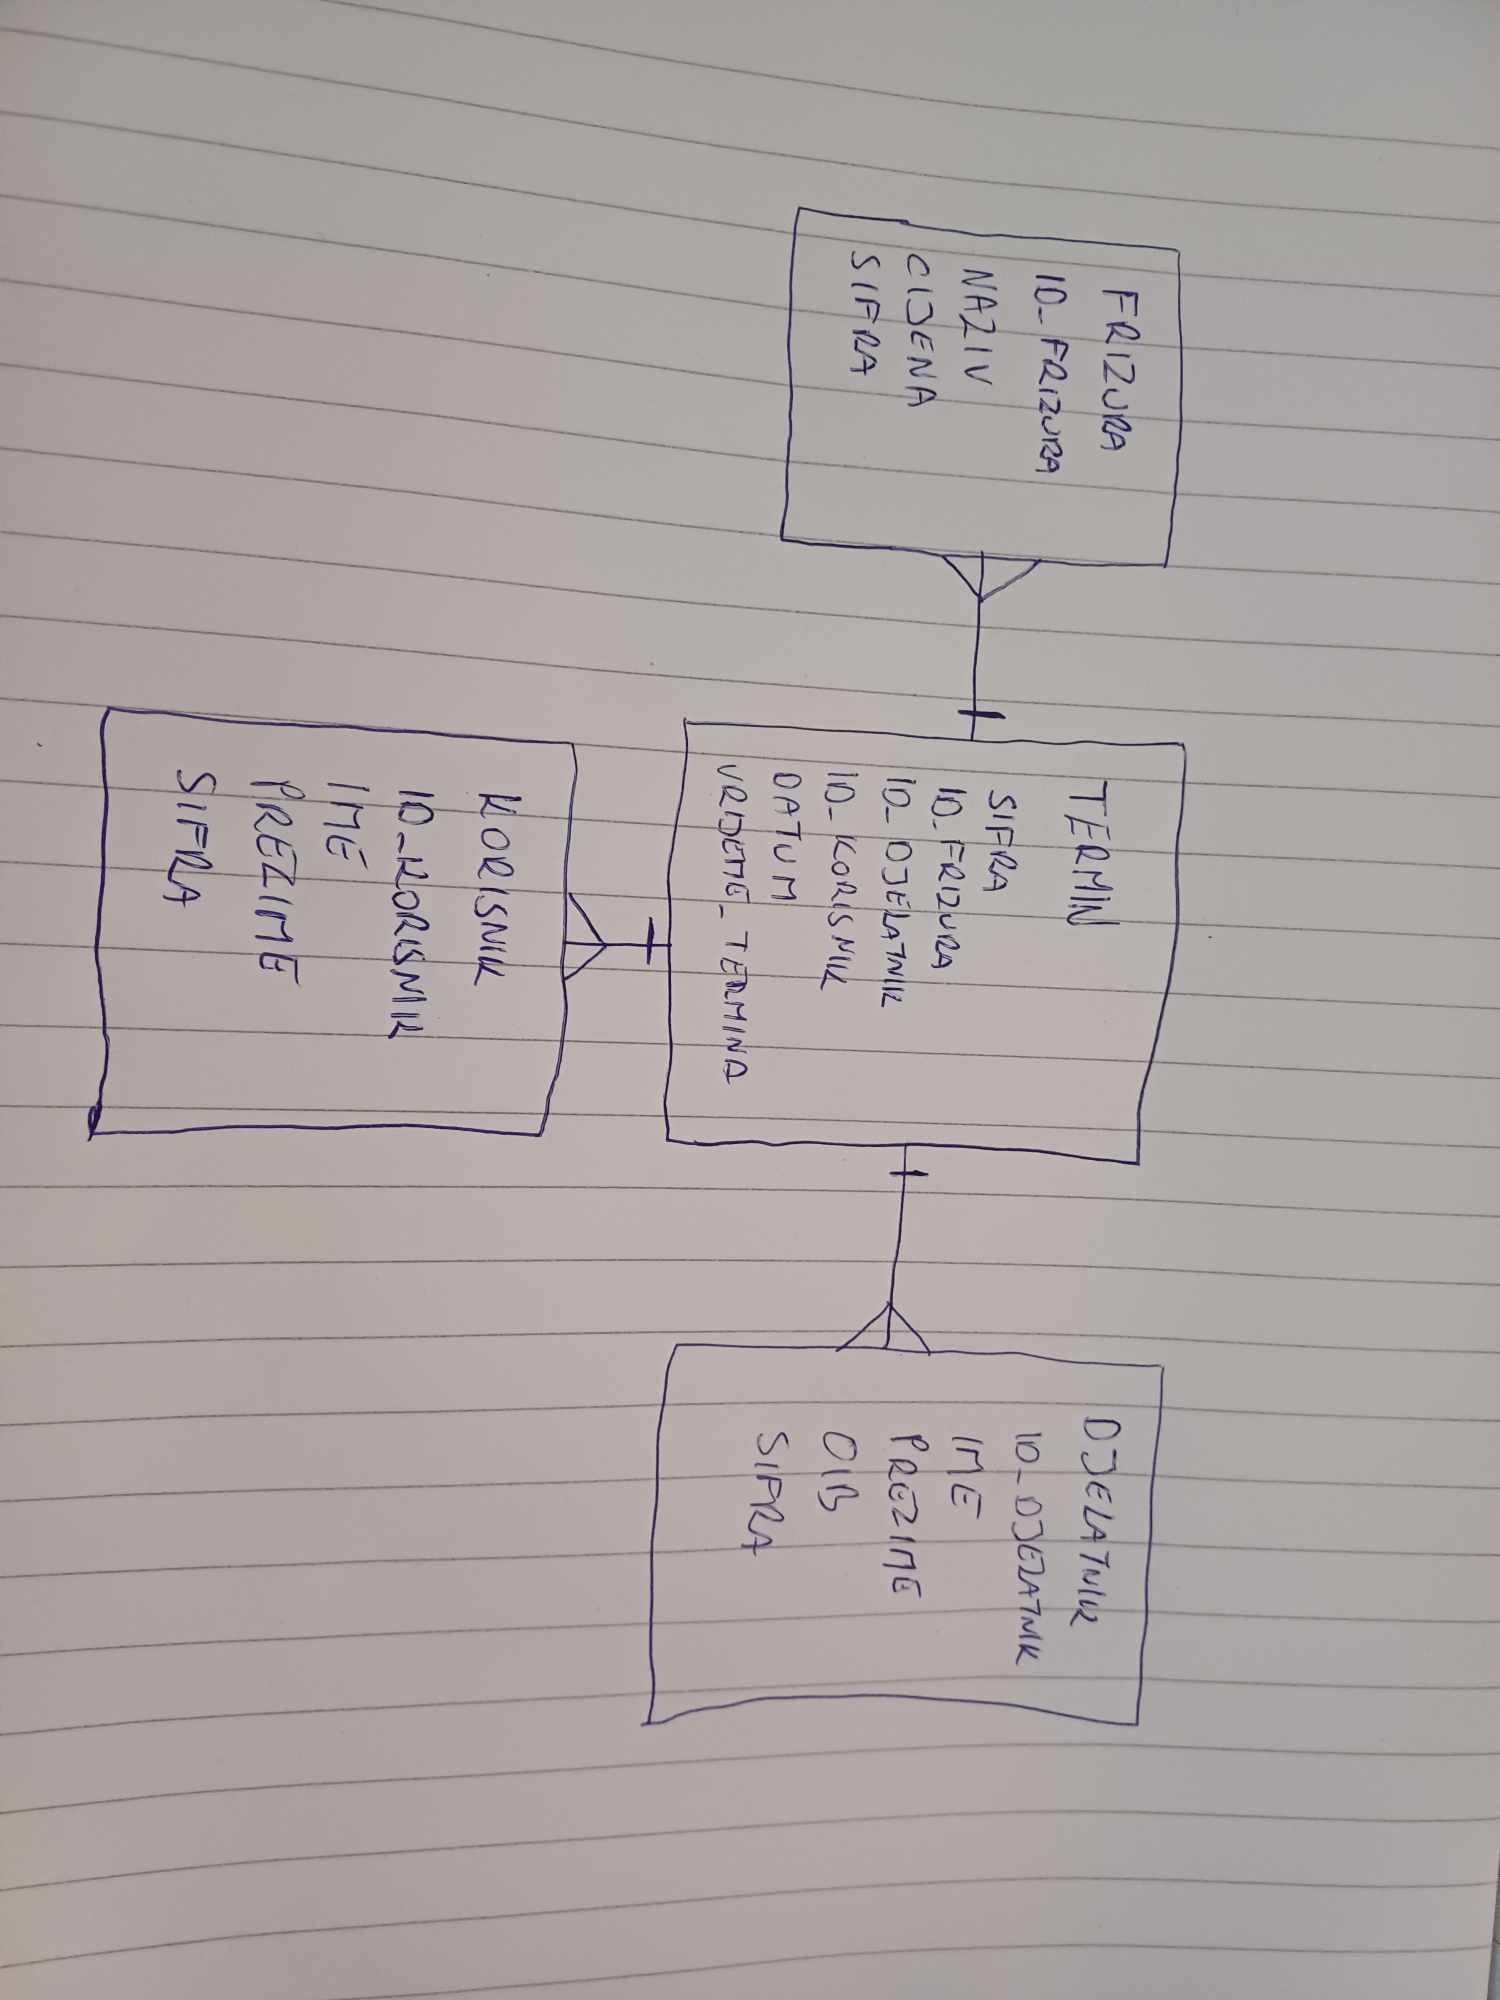 FRIZURA
ID_FRIZURA
NAZIV
CIJENA
SIFRA
TERMIN
SIFRA
ID_FRIZURA
ID_DJELATNIK
ID_KORISNIK
DATUM
VRIJEME_TERMINA
DJELATNIK
ID_DJELATNIK
IME
PREZIME
OIB
SIFRA
KORISNIK
ID_KORISNIK
IME
PREZIME
SIFRA